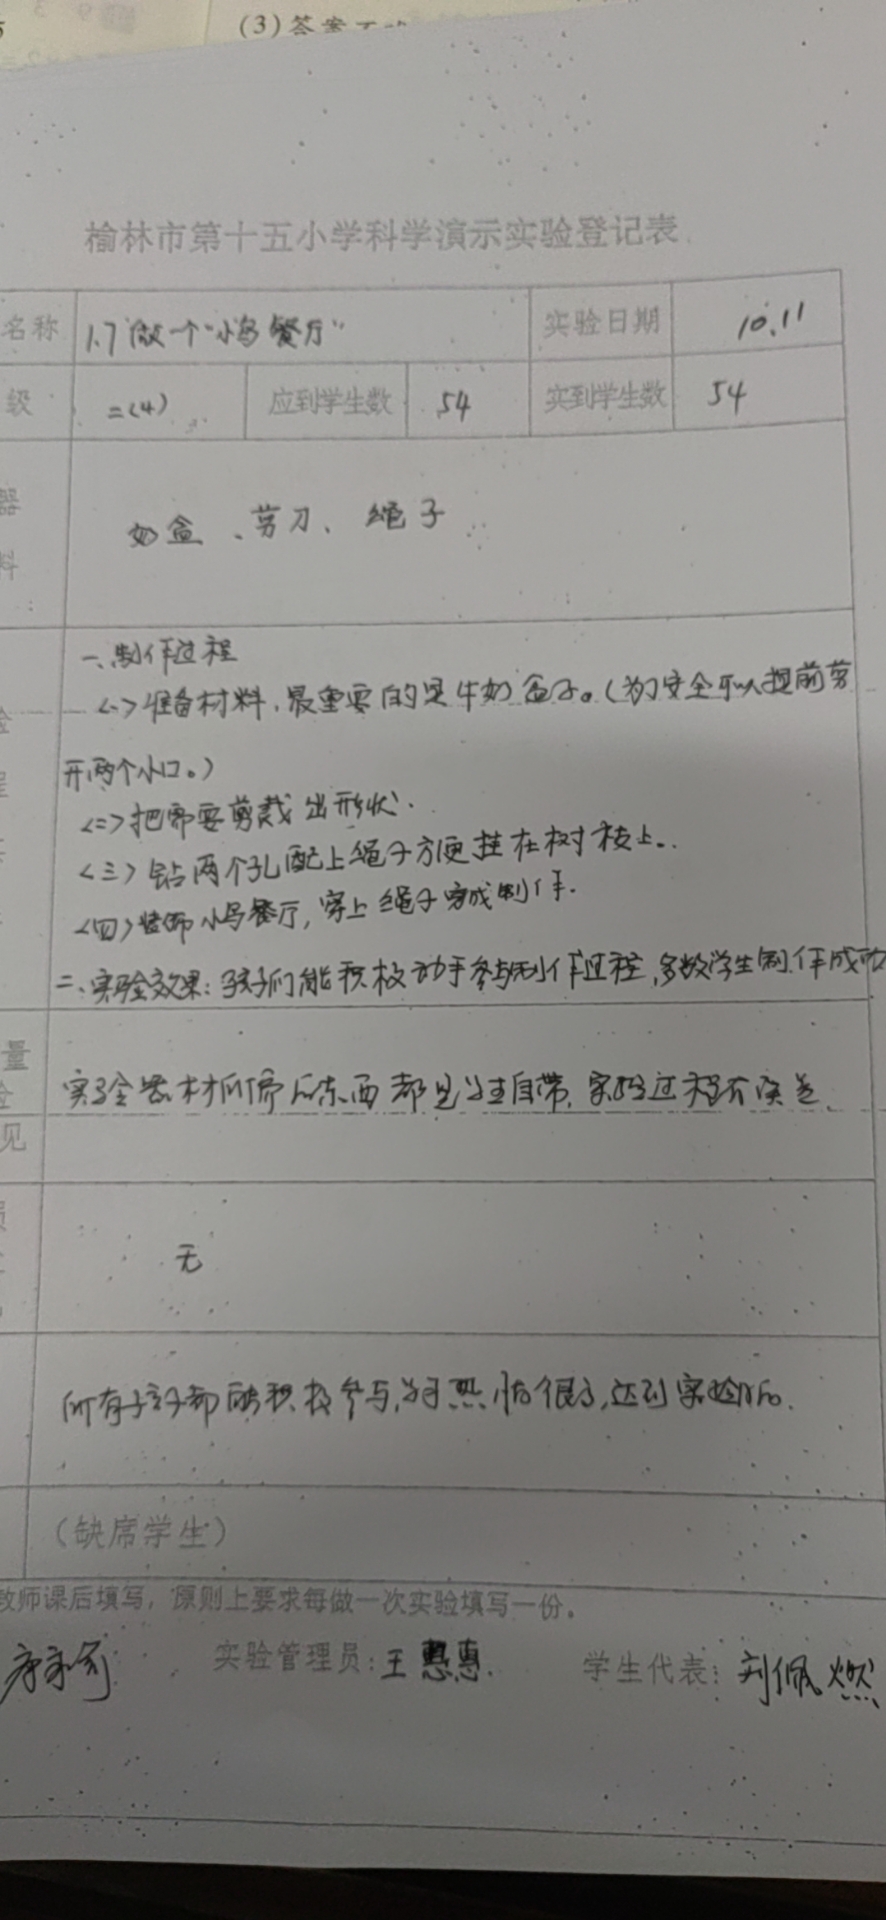 (3)答案不
榆林市第十五小学科学演示实验登记表
名称 1.7做一个“小鸟餐厅” 实验日期 10.11
级 二(4) 应到学生数 54 实到学生数 54
器
料
奶盒、剪刀、绳子
一、制作过程
<一>准备材料,最重要的是牛奶盒子。(为了安全可以提前剪
开两个小口。)
<二>把需要剪裁出形状.
<三>钻两个孔配上绳子方便挂在树枝上.
<四>装饰小鸟餐厅,穿上绳子完成制作.
二、实验效果:孩子们能积极动手参与制作过程,多数学生制作成功
量
见
实验器材所需东西都是学生自带,实验过程
无
所有孩子都能积极参与,热情很高,达到实验
(缺席学生)
教师课后填写,原则上要求每做一次实验填写一份。
实验管理员:王惠惠. 学生代表:刘佩燃